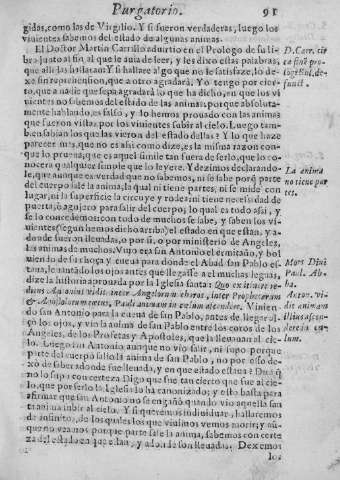 Purgatorio. 91
gidas, como las de Virgilio. Y si fueron verdaderas, luego los
vivientes sabemos del estado de algunas animas.
El Doctor Martin Carrillo aduirtio en el Prologo de su li
bro junto al fin, al que le auia de leer, y les dixo estas palabras,
que alli las hallarà: Y si hallare algo que no le satisfaze, lo de-
xe aparte, que otro aurà a quien agradarà. Y o tengo por cier-
to, que a nadie que sepa agradarà lo que ha dicho, en que los vi
uientes no sabemos del estado de las animas: porque absoluta-
mente hablando, es falso, y lo hemos prouado con las animas
que fueron vistas por los viuientes subir al cielo. Luego tam-
bien sabian los que las vieron del estado dellas? Y lo que haze
parecer mas, que no es assi como dize, es la misma razon con
que lo prueua, que es aquel simile tan fuera de serlo, que lo co-
nocerà qualquier simple que lo leyere. Y dezimos declarando-
le, que aunque es verdad que no sabemos, ni se sabe porq̃ parte
del cuerpo sale la anima, la qual ni tiene partes, ni se mide con
lugar, ni la superficie la circuye y rodea: ni tiene necessidad de
puerta, ò agujero para salir del cuerpo; lo qual es todo assi, y
se lo concedemos con todo de muchos se sabe, y saben los vi-
uientes (segun hemos dicho arriba) el estado en que estan, y a-
donde fueron lleuadas, o por si, o por ministerio de Angeles,
las animas de muchos. Vino era san Antonio el ermitaño, y bol
uiendo de su choça y cueua para donde el Abad san Pablo es-
taua, leuantando los ojos antes que llegasse a el muchas leguas,
dize la historia aprouada por la Iglesia santa: Quo ex itinere re-
diens Antonius vidit inter Angelorum choros, inter Prophetarum
& Apostolorum cœtus, Pauli animam in cælum ascendere. Vinien-
do san Antonio para la cueua de san Pablo, antes de llegar al-
çò los ojos, y vio la anima de san Pablo entre los coros de los
Angeles, de los Profetas y Apostoles, que la lleuauan al cie-
lo. Luego san Antonio aunque no vio salir, ni supo porque
parte del cuerpo salio la anima de san Pablo, no por esso de-
xò de saber adonde fue lleuada, y en que estado estaua? Dirà q̃
no lo supo con certeza. Digo que fue tan cierto que fue al cie-
lo, que por serlo la Iglesia lo ha canonizado; y esto basta para
afirmar que san Antonio no se engañò quando vio aquella san
ta anima subir al cielo. Y si queremos indiuiduar, hallaremos
de infinitos, de los quales los que viuimos vemos morir; y aũ-
que no veamos porque parte sale la anima, sabemos con certe
za del estado en que estan, y adonde son lleuadas. Dexemos
los
D. Carr. cir
ca finẽ pro-
logi sui, de-
funct.
La anima
no tiene par
tes.
Mors Diui
Paul. Ab-
ba.
Anton. vi-
dit animam
illius ascen-
dere in cæ-
lum.